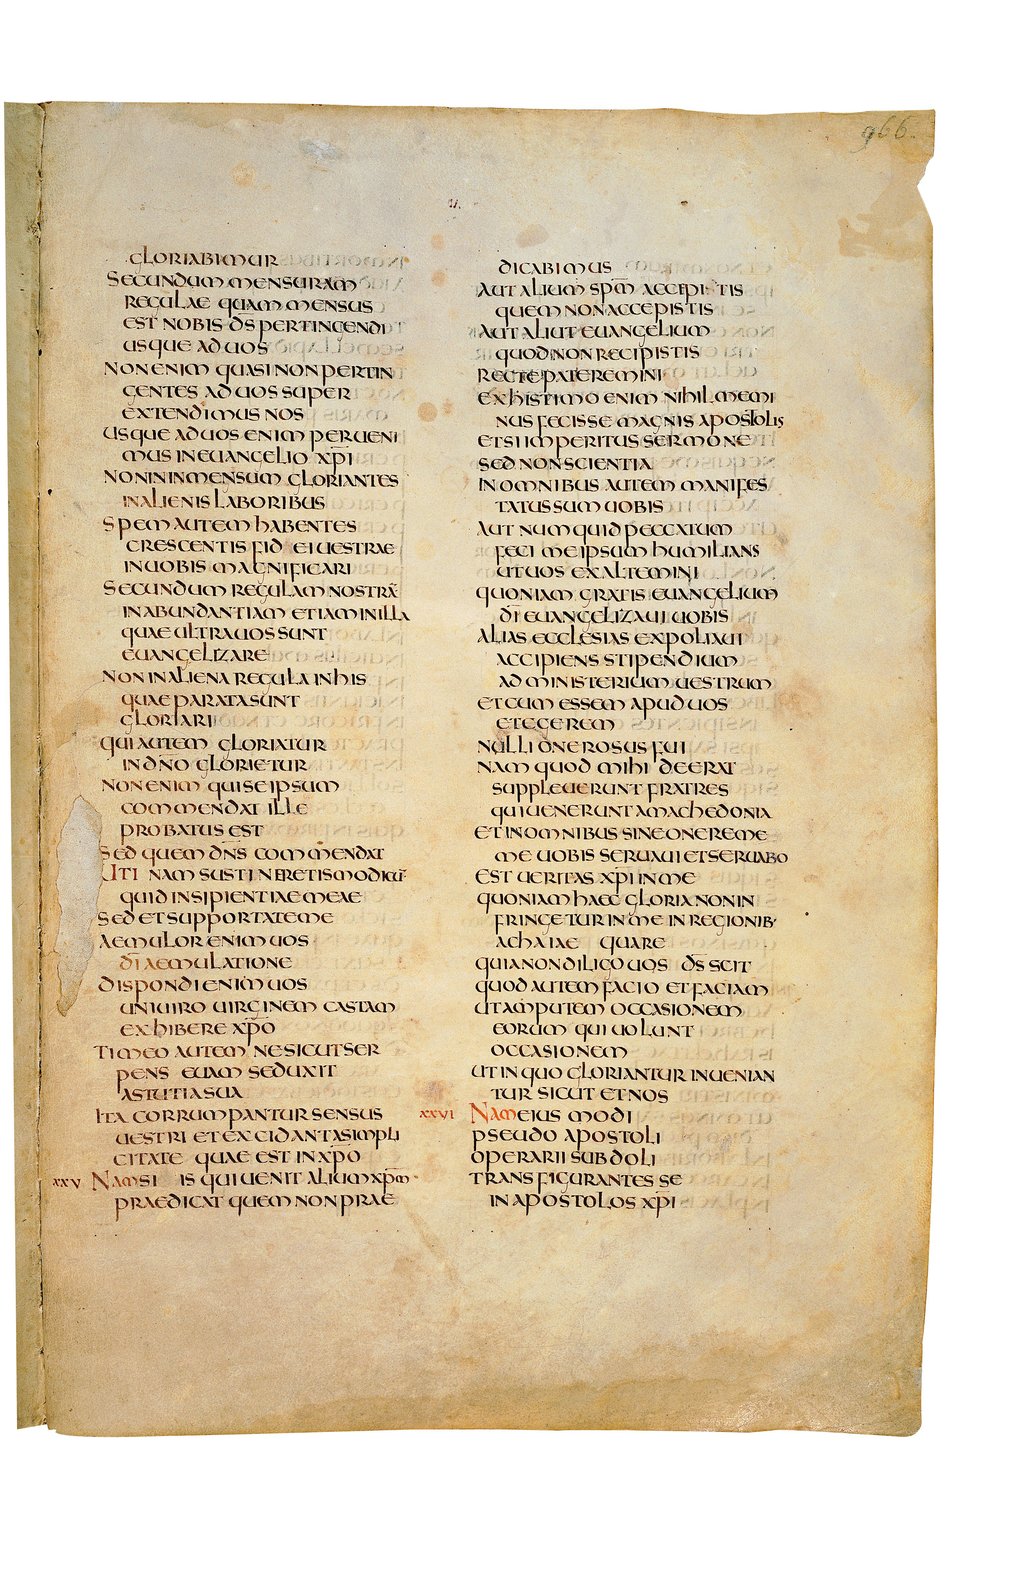 966.
gloriabimur
Secundum mensuram
regulae quam mensus
est nobis d̅s pertingendi
usque ad uos
Non enim quasi non pertin
gentes ad uos super
extendimus nos
Usque ad uos enim perueni
mus in euangelio xp̅i
Non in inmensum gloriantes
in alienis laboribus
Spem autem habentes
crescentis fid ei uestrae
in uobis magnificari
Secundum regulam nostrā
in abundantiam etiam in illa
quae ultra uos sunt
euangelizare
Non in aliena regula in his
quae parata sunt
gloriari
Qui autem gloriatur
in dn̅o glorietur
Non enim qui se ipsum
commendat ille
probatus est
Sed quem dn̅s commendat
Uti nam sustineretis modicū
quid insipientiae meae
Sed et supportate me
Aemulor enim uos
di̅ aemulatione
Dispondi enim uos
uni uiro uirginem castam
exhibere xp̅o
Timeo autem ne sicut ser
pens euam seduxit
astutia sua
Ita corrumpantur sensus
uestri et excidant a simpli
citate quae est in xp̅o
xxv Nam si is qui uenit alium xp̅m
praedicat quem non prae
dicabimus
Aut alium sp̅m accepistis
quem non accepistis
Aut aliut euangelium
quod non recipistis
Recte pateremini
Existimo enim nihil me mi
nus fecisse magnis apostolis
Etsi imperitus sermone
sed non scientia
In omnibus autem manifes
tatus sum uobis
Aut numquid peccatum
feci me ipsum humilians
ut uos exaltemini
Quoniam gratis euangelium
di̅ euangelizaui uobis
Alias ecclesias expoliaui
accipiens stipendium
ad ministerium uestrum
Et cum essem apud uos
et egerem
Nulli onerosus fui
Nam quod mihi deerat
suppleuerunt fratres
qui uenerunt a machedonia
Et in omnibus sine onere me
me uobis seruaui et seruabo
Est ueritas xp̅i in me
Quoniam haec gloria non in
fringetur in me in regionib·
achaiae quare
Quia non diligo uos d̅s scit
Quod autem facio et faciam
Ut amputem occasionem
eorum qui uolunt
occasionem
Ut in quo gloriantur inuenian
tur sicut et nos
xxvi Nam eius modi
pseudo apostoli
operarii subdoli
Transfigurantes se
in apostolos xp̅i